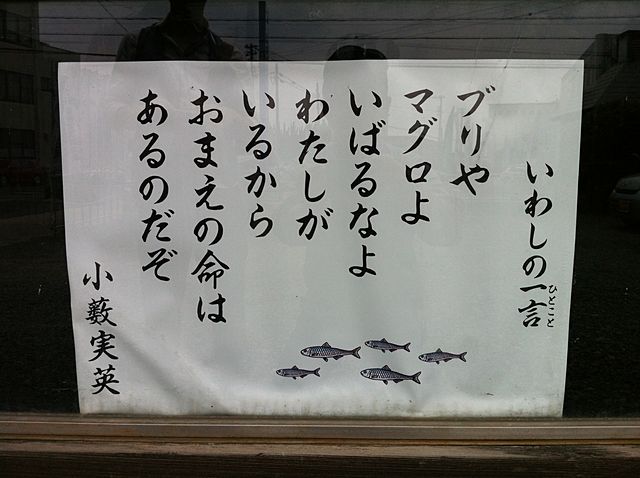 いわしの一言
ひとこと
ブリや
マグロよ
いばるなよ
わたしが
いるから
おまえの命は
あるのだぞ
小薮実英